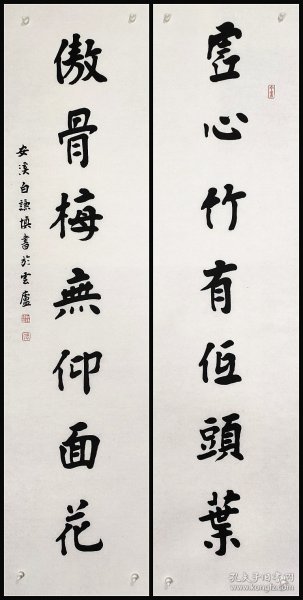 虛心竹有低頭葉
傲骨梅無仰面花
安溪白謙慎書於雲廬
孔夫子旧书网
www.kongfz.com